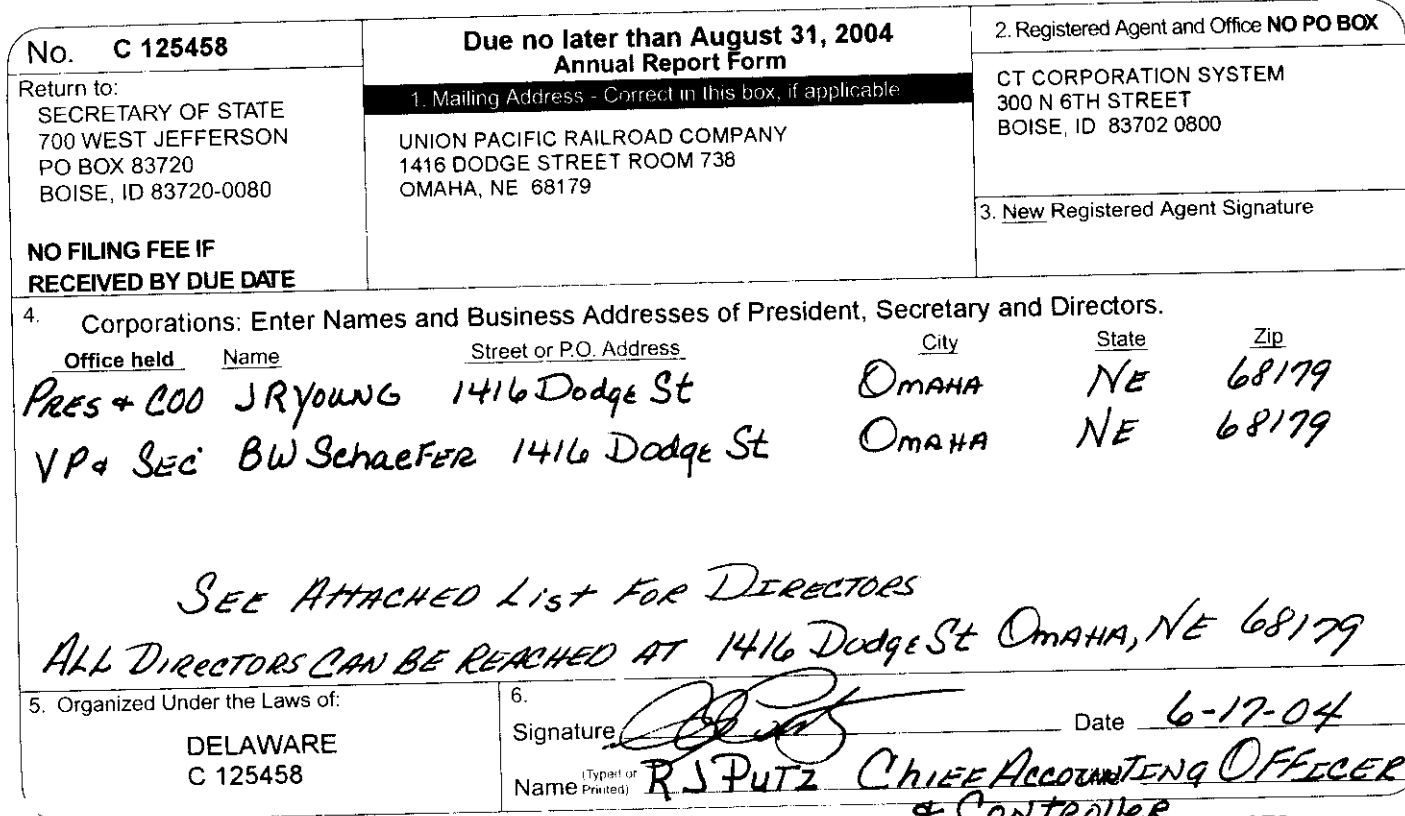 No. C 125458
Return to:
SECRETARY OF STATE
700 WEST JEFFERSON
PO BOX 83720
BOISE, ID 83720-0080
NO FILING FEE IF
RECEIVED BY DUE DATE
Due no later than August 31, 2004
Annual Report Form
1. Mailing Address - Correct in this box, if applicable
UNION PACIFIC RAILROAD COMPANY
1416 DODGE STREET ROOM 738
OMAHA, NE 68179
2. Registered Agent and Office NO PO BOX
CT CORPORATION SYSTEM
300 N 6TH STREET
BOISE, ID 83702 0800
3. New Registered Agent Signature
4. Corporations: Enter Names and Business Addresses of President, Secretary and Directors.
Office held Name Street or P.O. Address City State Zip
PRES & COO J R YOUNG 1416 Dodge St OMAHA NE 68179
VP & SEC BW Schaefer 1416 Dodge St OMAHA NE 68179
SEE ATTACHED List FOR DIRECTORS
ALL DIRECTORS CAN BE REACHED AT 1416 Dodge St OMAHA, NE 68179
5. Organized Under the Laws of:
DELAWARE
C 125458
6.
Signature Date 6-17-04
Name (Typed or Printed) R J PUTZ CHIEF ACCOUNTING OFFICER
& CONTROLLER